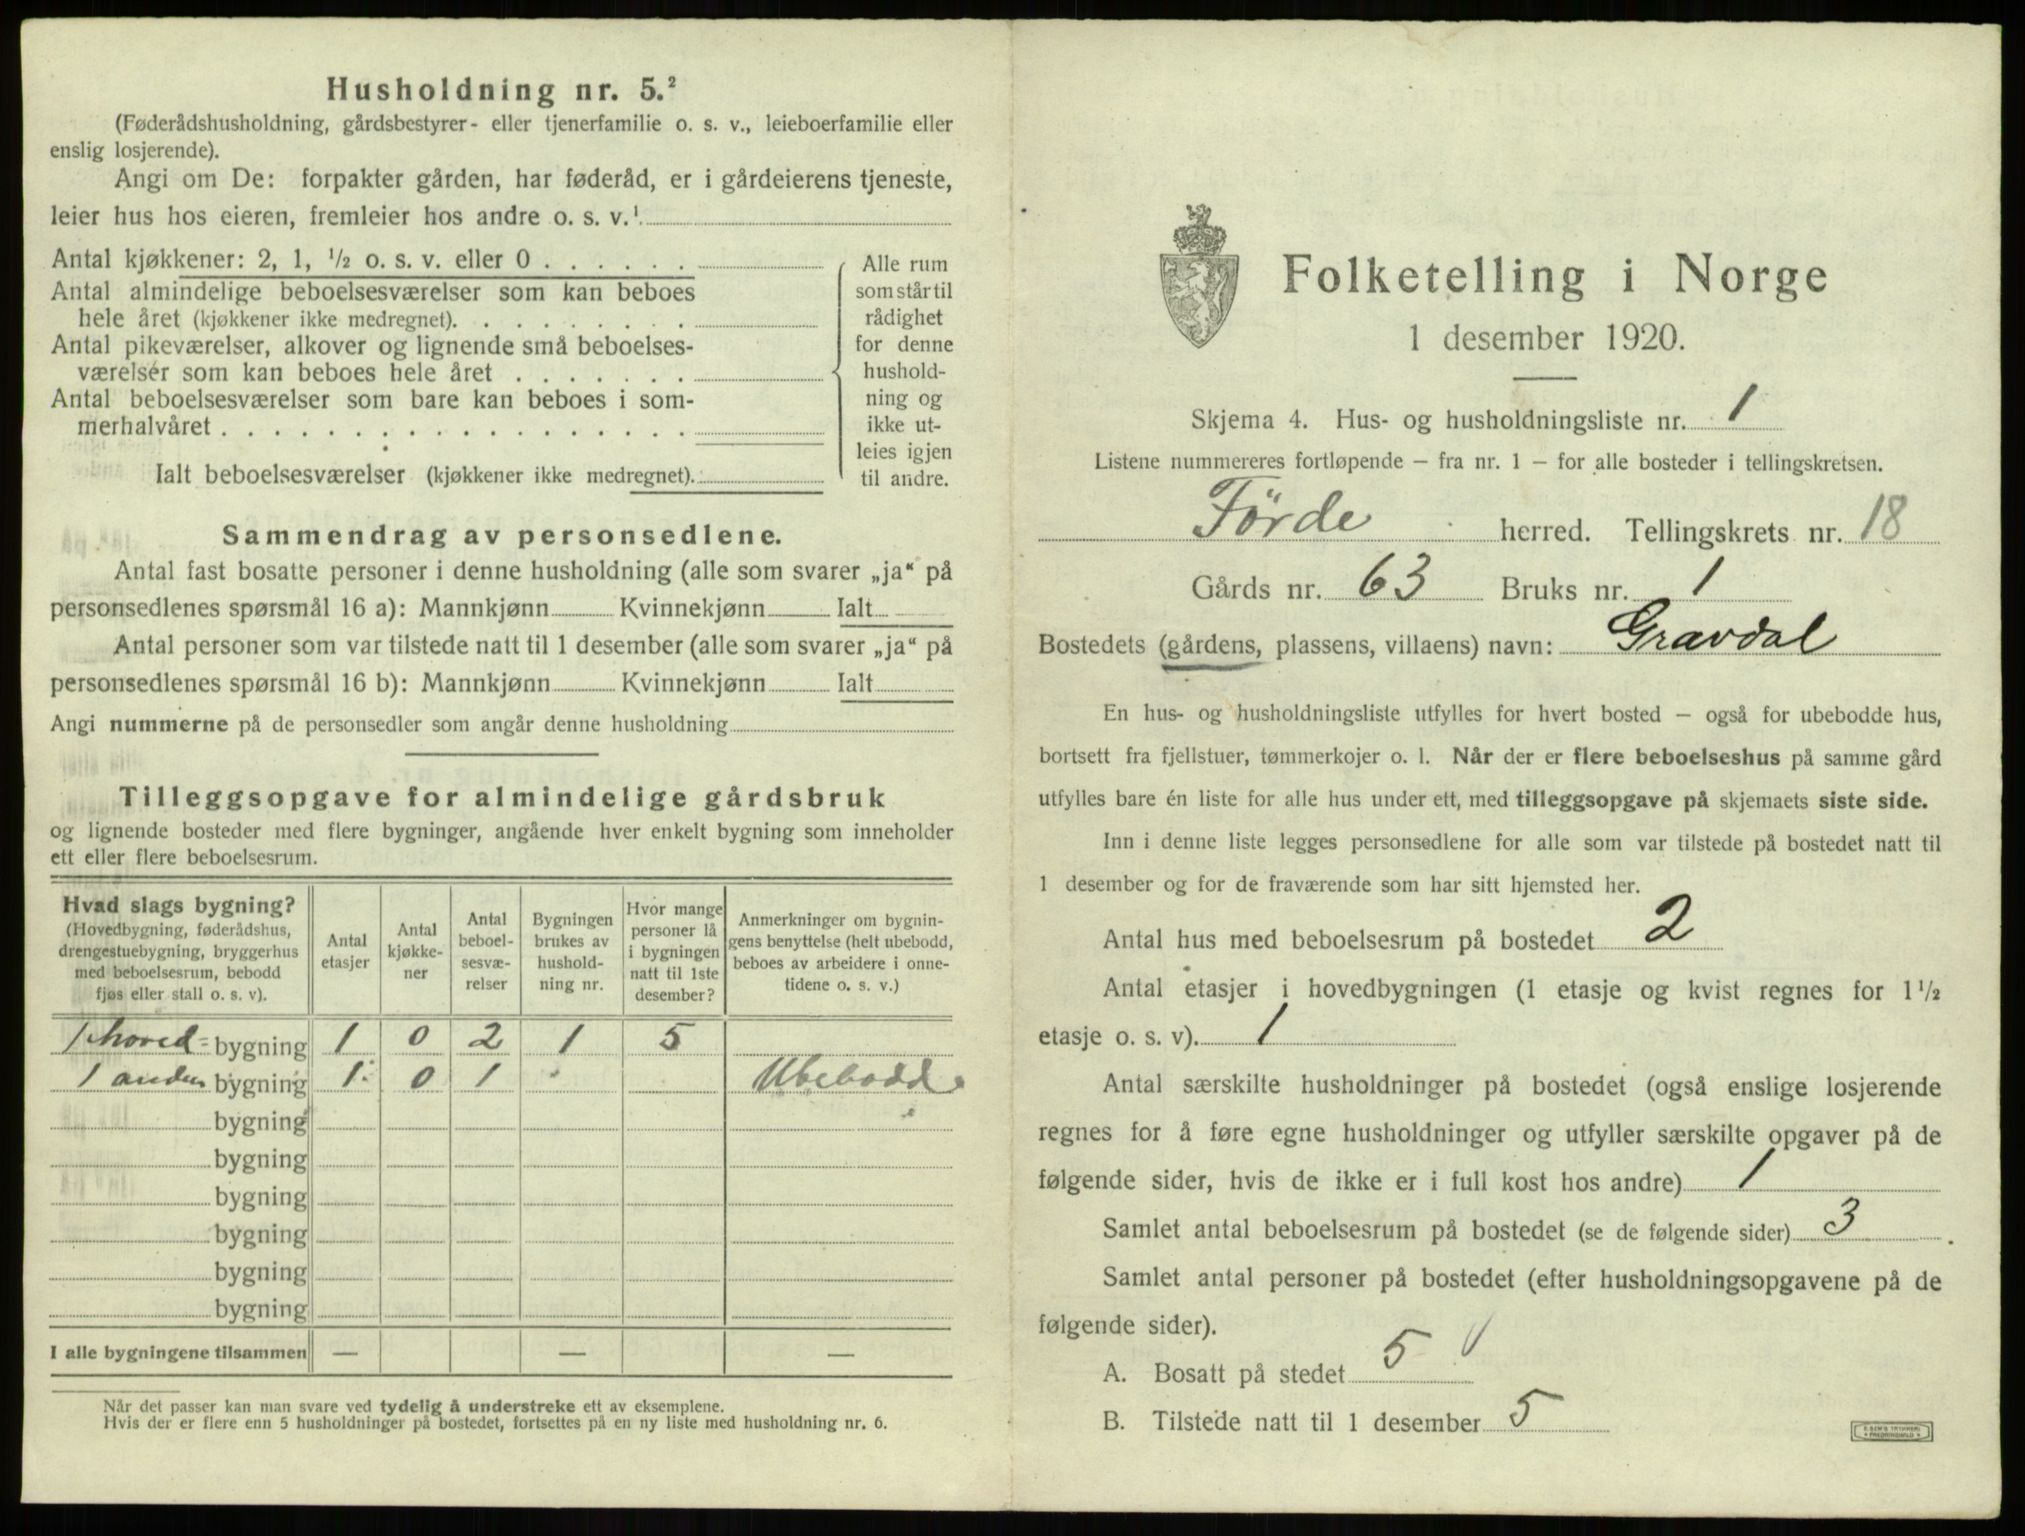 Husholdning nr. 5.²
(Føderådshusholdning, gårdsbestyrer- eller tjenerfamilie o. s. v., leieboerfamilie eller
enslig losjerende).
Angi om De: forpakter gården, har føderåd, er i gårdeierens tjeneste,
leier hus hos eieren, fremleier hos andre o. s. v.¹
Antal kjøkkener: 2, 1, ½ o. s. v. eller 0 . . . . . .
Antal almindelige beboelsesværelser som kan beboes
hele året (kjøkkener ikke medregnet). . . . . . . . .
Antal pikeværelser, alkover og lignende små beboelses-
værelser som kan beboes hele året . . . . . . .
Antal beboelsesværelser som bare kan beboes i som-
merhalvåret . . . . . . . . . . . . . . . . . .
Ialt beboelsesværelser (kjøkkener ikke medregnet).
Alle rum
som står til
rådighet
for denne
hushold-
ning og
ikke ut-
leies igjen
til andre.
Sammendrag av personsedlene.
Antal fast bosatte personer i denne husholdning (alle som svarer „ja“ på
personsedlenes spørsmål 16 a): Mannkjønn Kvinnekjønn Ialt
Antal personer som var tilstede natt til 1 desember (alle som svarer „ja“ på
personsedlenes spørsmål 16 b): Mannkjønn Kvinnekjønn Ialt
Angi nummerne på de personsedler som angår denne husholdning
Tilleggsopgave for almindelige gårdsbruk
og lignende bosteder med flere bygninger, angående hver enkelt bygning som inneholder
ett eller flere beboelsesrum.
Hvad slags bygning?
(Hovedbygning, føderådshus,
drengestuebygning, bryggerhus
med beboelsesrum, bebodd
fjøs eller stall o. s. v).
Antal
etasjer
Antal
kjøkke-
ner
Antal
beboel-
sesvæ-
relser
Bygningen
brukes av
hushold-
ning nr.
Hvor mange
personer lå
i bygningen
natt til 1ste
desember?
Anmerkninger om bygnin-
gens benyttelse (helt ubebodd,
beboes av arbeidere i onne-
tidene o. s. v.)
1 hoved- bygning 1 0 2 1 5
1 anden bygning 1 0 1 Ubebodd
bygning
bygning
bygning
bygning
bygning
bygning
I alle bygningene tilsammen — — —
Når det passer kan man svare ved tydelig å understreke ett av eksemplene.
Hvis der er flere enn 5 husholdninger på bostedet, fortsettes på en ny liste med husholdning nr. 6.
Folketelling i Norge
1 desember 1920.
Skjema 4. Hus- og husholdningsliste nr. 1
Listene nummereres fortløpende – fra nr. 1 – for alle bosteder i tellingskretsen.
Förde herred. Tellingskrets nr. 18
Gårds nr. 63 Bruks nr. 1
Bostedets (gårdens, plassens, villaens) navn: Gravdal
En hus- og husholdningsliste utfylles for hvert bosted – også for ubebodde hus,
bortsett fra fjellstuer, tømmerkojer o. l. Når der er flere beboelseshus på samme gård
utfylles bare én liste for alle hus under ett, med tilleggsopgave på skjemaets siste side.
Inn i denne liste legges personsedlene for alle som var tilstede på bostedet natt til
1 desember og for de fraværende som har sitt hjemsted her.
Antal hus med beboelsesrum på bostedet 2
Antal etasjer i hovedbygningen (1 etasje og kvist regnes for 1½
etasje o. s. v). 1
Antal særskilte husholdninger på bostedet (også enslige losjerende
regnes for å føre egne husholdninger og utfyller særskilte opgaver på de
følgende sider, hvis de ikke er i full kost hos andre) 1
Samlet antal beboelsesrum på bostedet (se de følgende sider) 3
Samlet antal personer på bostedet (efter husholdningsopgavene på de
følgende sider).
A. Bosatt på stedet 5
B. Tilstede natt til 1 desember 5